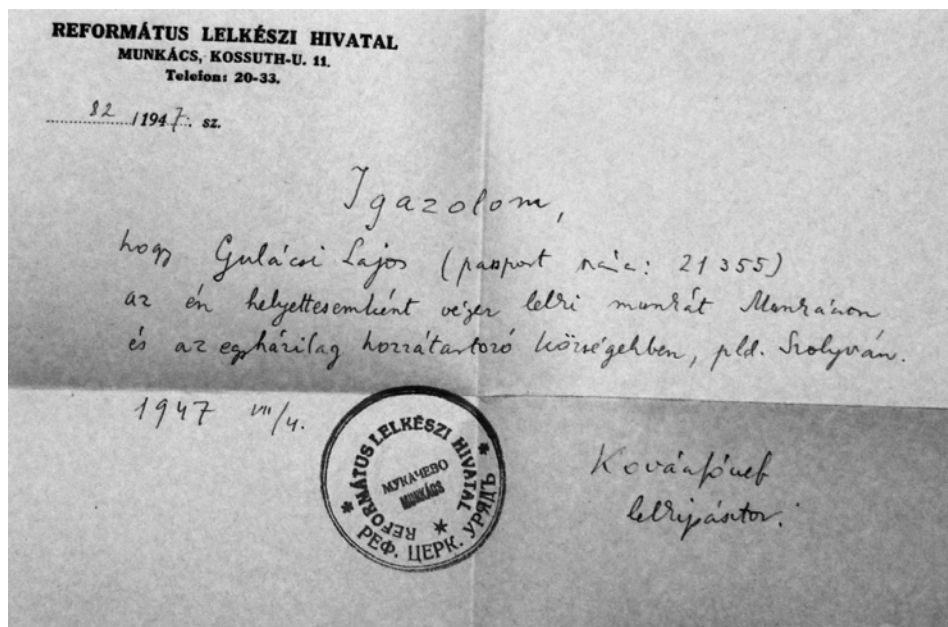 REFORMÁTUS LELKÉSZI HIVATAL
MUNKÁCS, KOSSUTH-U. 11.
Telefon: 20-33.
82 /1947. sz.
Igazolom,
hogy Gulácsi Lajos (passport száma: 21355)
az én helyettesemként végez lelki munkát Munkácson
és az egyházilag hozzátartozó községekben, pld. Szolyván.
1947 VII/4.
REFORMÁTUS LELKÉSZI HIVATAL
МУКАЧЕВО
MUNKÁCS
РЕФ. ЦЕРК. УРЯДЪ
József
lelkipásztor.